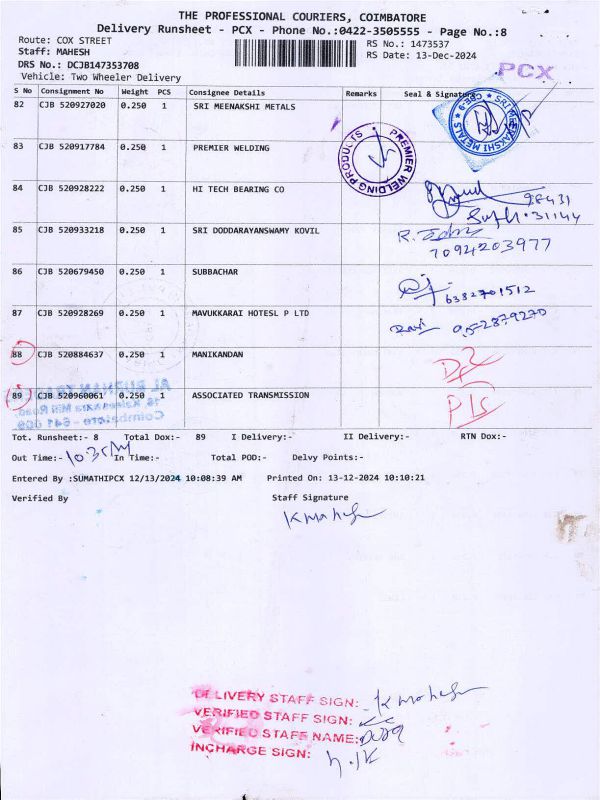 THE PROFESSIONAL COURIERS, COIMBATORE
Delivery Runsheet - PCX - Phone No.:0422-3505555 - Page No.:8
Route: COX STREET
RS No.: 1473537
Staff: MAHESH
RS Date: 13-Dec-2024
DRS No.: DCJB147353708
PCX
Vehicle: Two Wheeler Delivery
S No Consignment No Weight PCS Consignee Details Remarks Seal & Signature
82 CJB 520927020 0.250 1 SRI MEENAKSHI METALS
SRI MEENAKSHI METALS CBE-9
83 CJB 520917784 0.250 1 PREMIER WELDING
PREMIER WELDING PRODUCTS
84 CJB 520928222 0.250 1 HI TECH BEARING CO
98431
31144
85 CJB 520933218 0.250 1 SRI DODDARAYANSWAMY KOVIL
7094203977
86 CJB 520679450 0.250 1 SUBBACHAR
6382701512
87 CJB 520928269 0.250 1 MAVUKKARAI HOTESL P LTD
88 CJB 520884637 0.250 1 MANIKANDAN
89 CJB 520960061 0.250 1 ASSOCIATED TRANSMISSION
Tot. Runsheet:- 8 Total Dox:- 89 I Delivery:- II Delivery:- RTN Dox:-
Out Time:- In Time:- Total POD:- Delvy Points:-
Entered By :SUMATHIPCX 12/13/2024 10:08:39 AM Printed On: 13-12-2024 10:10:21
Verified By Staff Signature
K mahesh
DELIVERY STAFF SIGN: K mahesh
VERIFIED STAFF SIGN:
VERIFIED STAFF NAME:
INCHARGE SIGN: